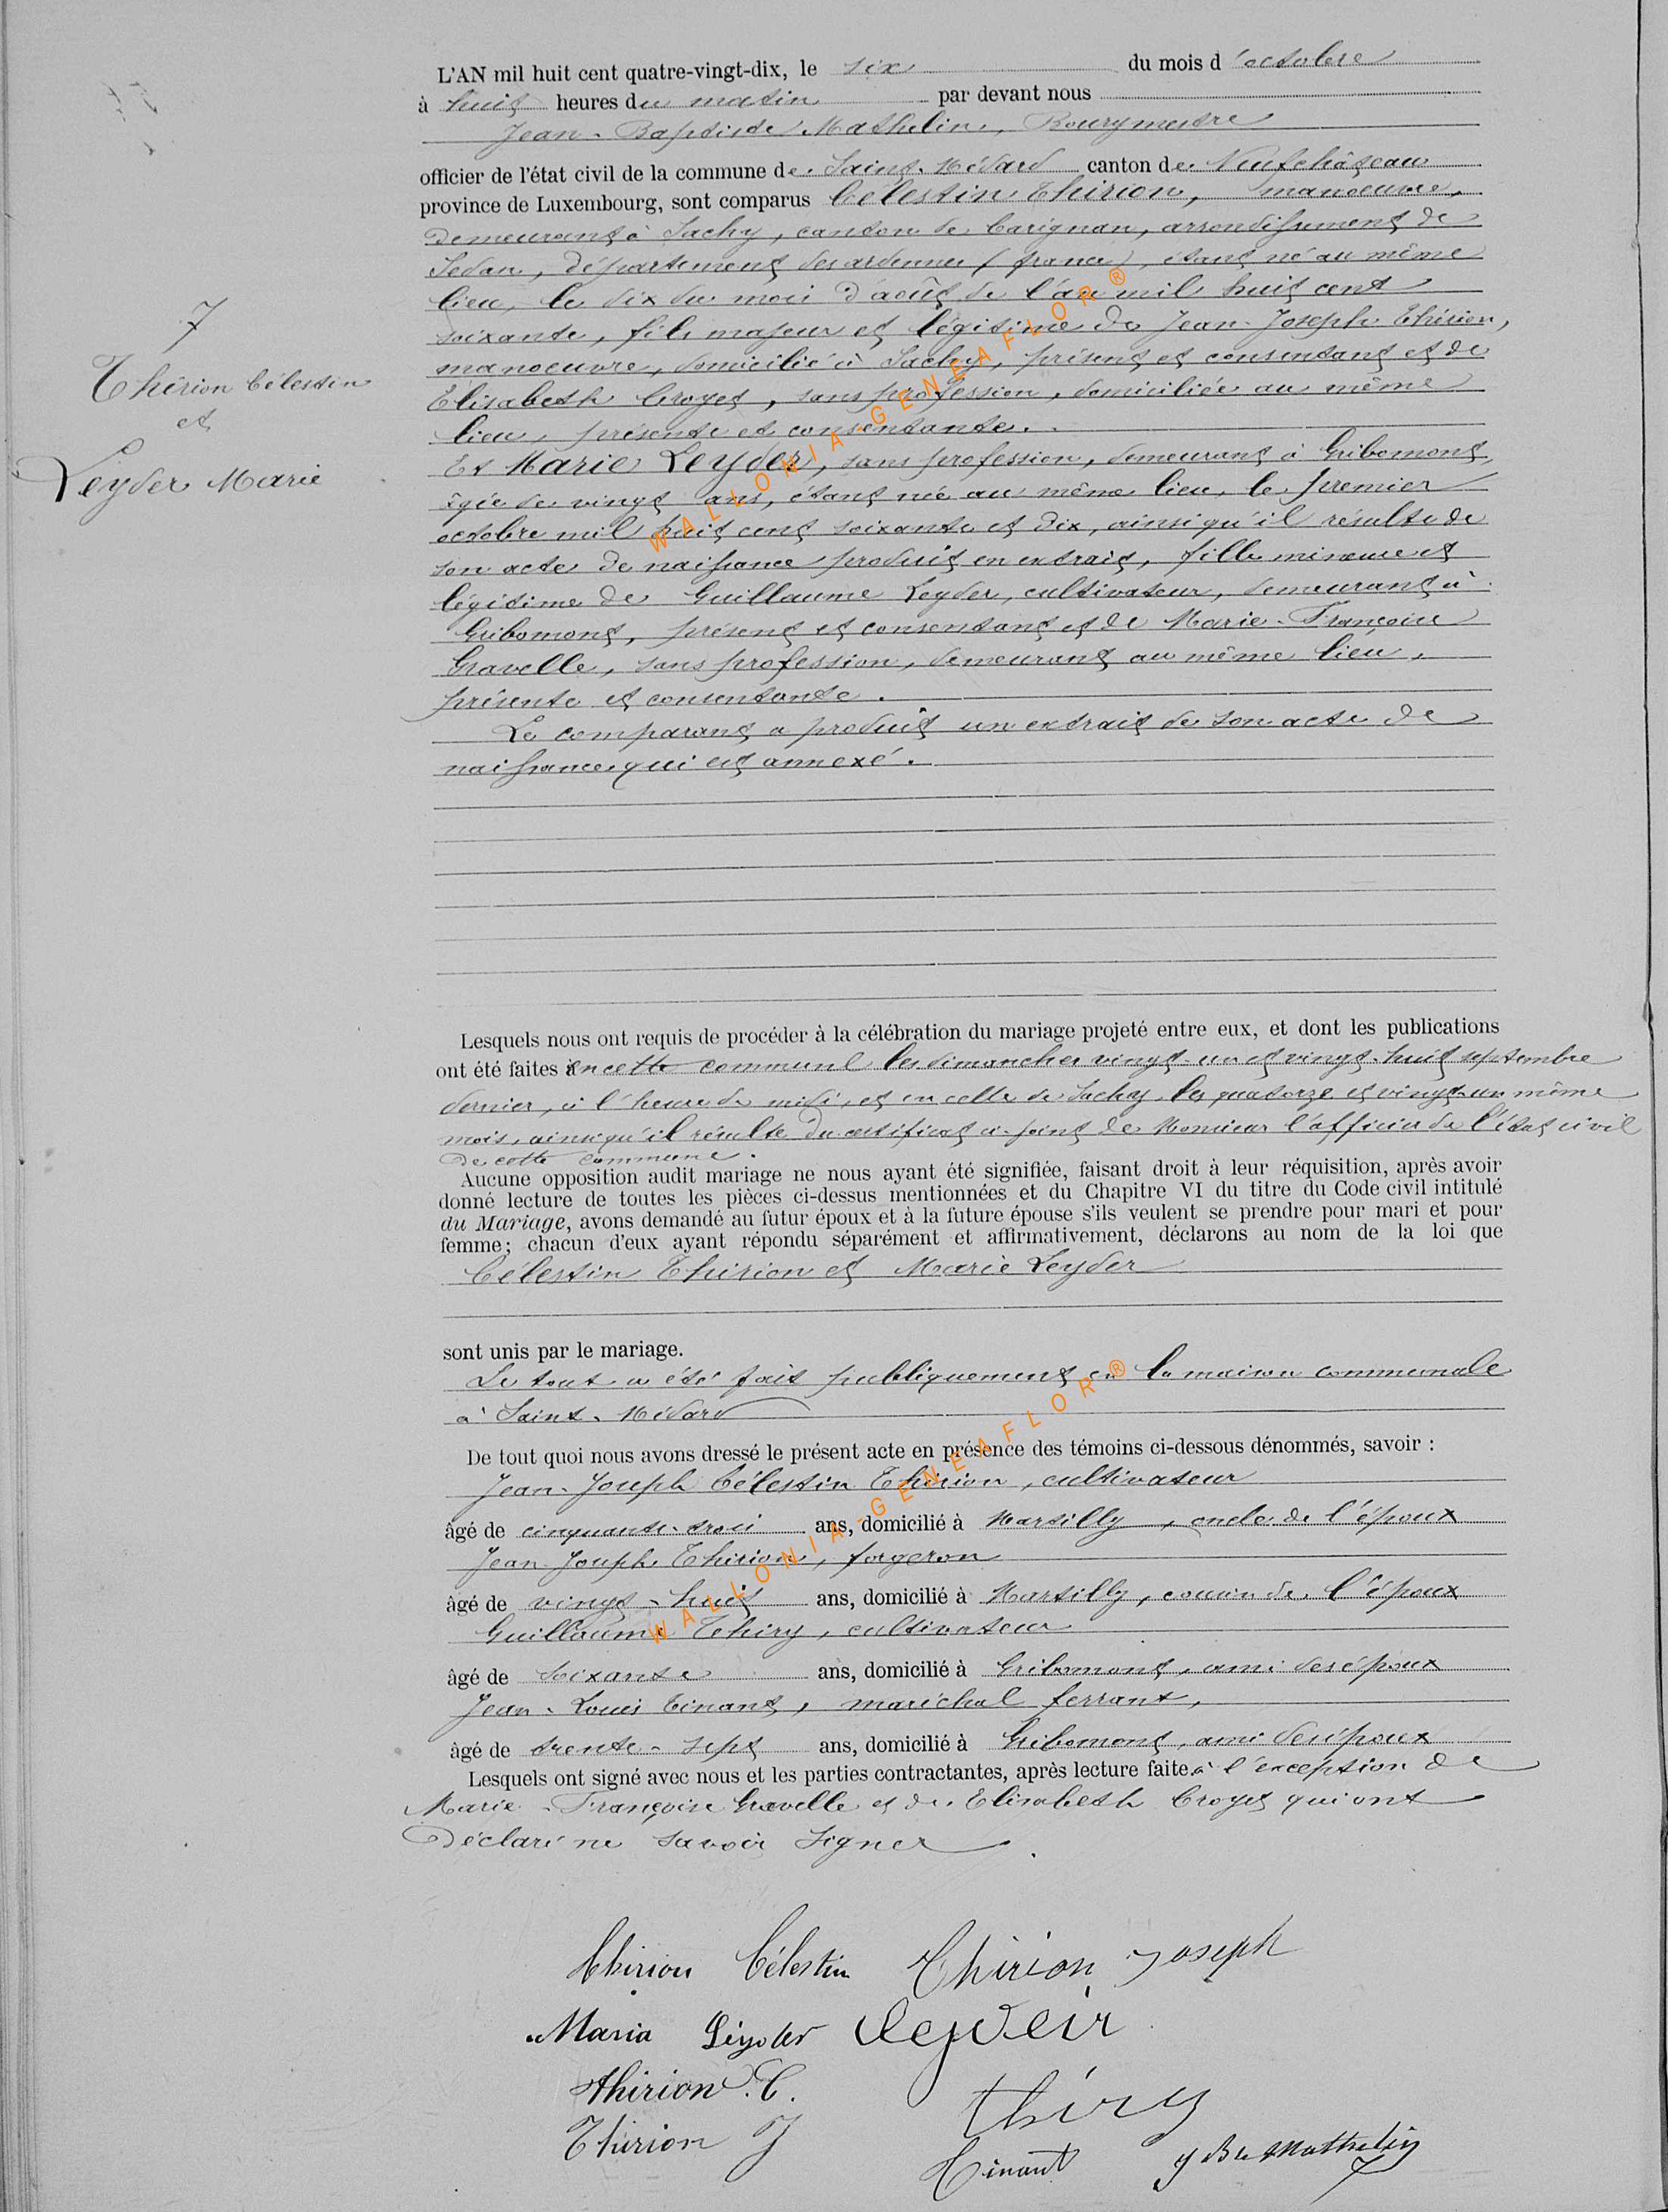 L'AN mil huit cent quatre-vingt-dix, le six du mois d'octobre
à huit heures du matin par devant nous
Jean-Baptiste Mathelin, Bourgmestre
officier de l'état civil de la commune de Saint-Médard canton de Neufchâteau
province de Luxembourg, sont comparus Célestin Thirion, manoeuvre,
demeurant à Sachy, canton de Carignan, arrondissement de
Sedan, département des ardennes (france), étant né au même
lieu, le dix du mois d'août de l'an mil huit cent
soixante, fils majeur et légitime de Jean-Joseph Thirion,
manoeuvre, domicilié à Sachy, présent et consentant et de
Elisabeth Croyet, sans profession, domiciliée au même
lieu, présente et consentante.
Et Marie Leyder, sans profession, demeurant à Gribomont,
âgée de vingt ans, étant née au même lieu, le premier
octobre mil huit cent soixante et dix, ainsi qu'il résulte de
son acte de naissance produit en extrait, fille mineure et
légitime de Guillaume Leyder, cultivateur, demeurant à
Gribomont, présent et consentant et de Marie-Françoise
Gravelle, sans profession, demeurant au même lieu,
présente et consentante.
Le comparant a produit un extrait de son acte de
naissance qui est annexé.
7
Thirion Célestin
et
Leyder Marie
Lesquels nous ont requis de procéder à la célébration du mariage projeté entre eux, et dont les publications
ont été faites en cette commune les dimanches vingt-un et vingt-huit septembre
dernier, à l'heure de midi, et en celle de Sachy les quatorze et vingt-un même
mois, ainsi qu'il résulte du certificat ci-joint de Monsieur l'officier de l'état civil
de cette commune.
Aucune opposition audit mariage ne nous ayant été signifiée, faisant droit à leur réquisition, après avoir
donné lecture de toutes les pièces ci-dessus mentionnées et du Chapitre VI du titre du Code civil intitulé
du Mariage, avons demandé au futur époux et à la future épouse s'ils veulent se prendre pour mari et pour
femme; chacun d'eux ayant répondu séparément et affirmativement, déclarons au nom de la loi que
Célestin Thirion et Marie Leyder
sont unis par le mariage.
Le tout a été fait publiquement en la maison communale
à Saint-Médard
De tout quoi nous avons dressé le présent acte en présence des témoins ci-dessous dénommés, savoir :
Jean-Joseph Célestin Thirion, cultivateur
âgé de cinquante-trois ans, domicilié à Martilly, oncle de l'époux
Jean-Joseph Thirion, forgeron
âgé de vingt-huit ans, domicilié à Martilly, cousin de l'époux
Guillaume Thiry, cultivateur
âgé de soixante ans, domicilié à Gribomont, ami des époux
Jean-Louis Tinant, maréchal ferrant,
âgé de trente-sept ans, domicilié à Gribomont, ami des époux
Lesquels ont signé avec nous et les parties contractantes, après lecture faite à l'exception de
Marie-Françoise Gravelle et de Elisabeth Croyet qui ont
déclaré ne savoir signer.
Thirion Célestin Thirion Joseph
Maria Léyder
Thirion C. Thiry
Thirion J Tinant J Bte Mathelin
WALLONIA-GENEAFLOR®
WALLONIA-GENEAFLOR®